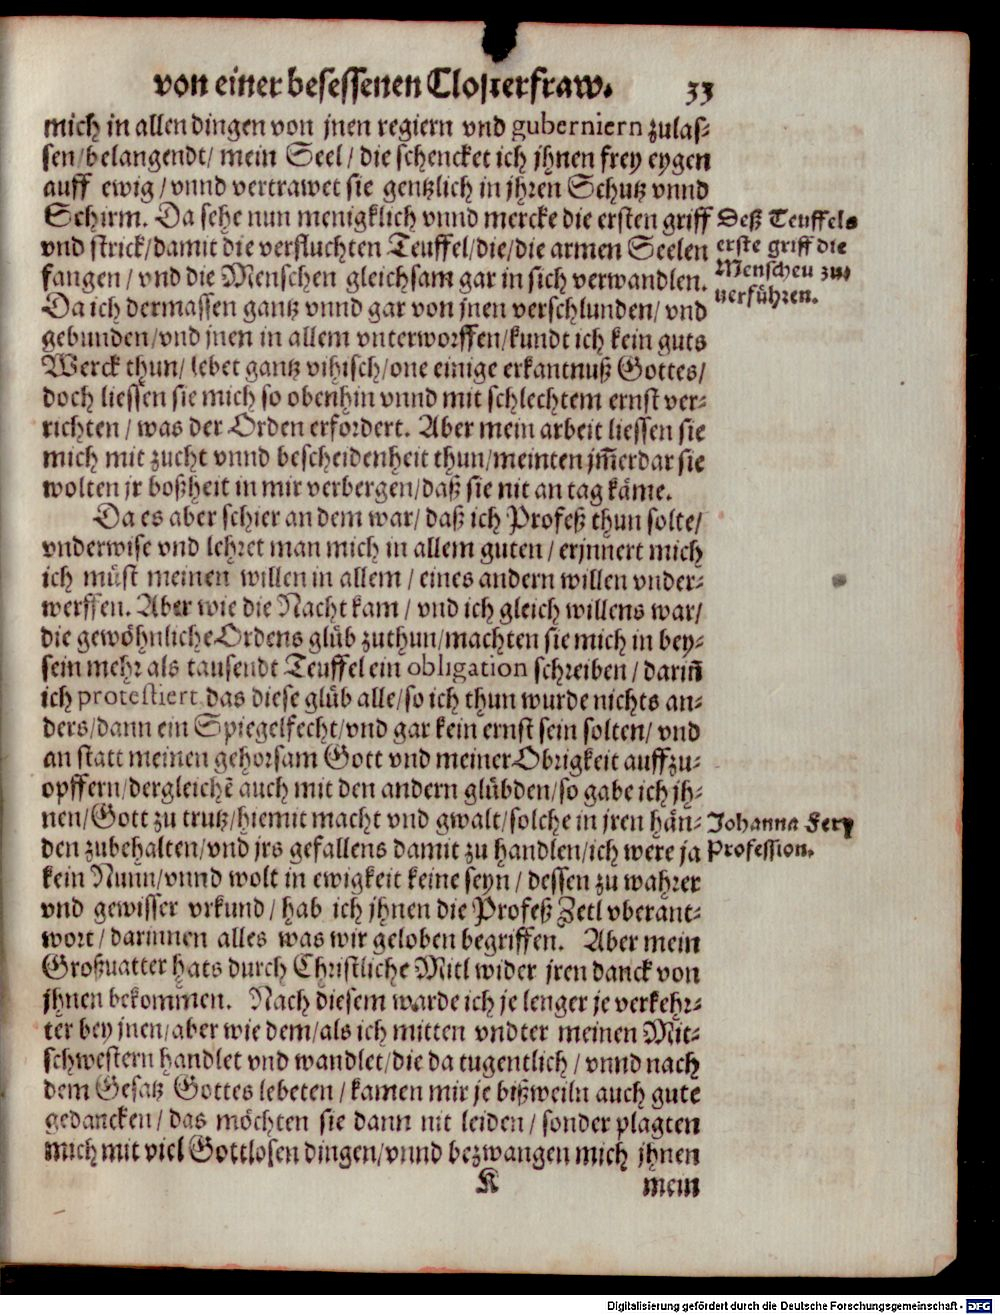 von einer besessenen Closterfraw. 33
mich in allen dingen von jnen regiern vnd guberniern zulas-
sen/belangendt/ mein Seel/ die schencket ich jhnen frey eygen
auff ewig/ vnnd vertrawet sie gentzlich in jhren Schutz vnnd
Schirm. Da sehe nun menigklich vnnd mercke die ersten griff
vnd strick/damit die verfluchten Teuffel/die/die armen Seelen
fangen/ vnd die Menschen gleichsam gar in sich verwandlen.
Deß Teuffels
erste griff die
Menschen zu-
uerführen.
Da ich dermassen gantz vnnd gar von jnen verschlunden/ vnd
gebunden/vnd jnen in allem vnterworffen/kundt ich kein guts
Werck thun/ lebet gantz vihisch/one einige erkantnuß Gottes/
doch liessen sie mich so obenhin vnnd mit schlechtem ernst ver-
richten/ was der Orden erfordert. Aber mein arbeit liessen sie
mich mit zucht vnnd bescheidenheit thun/meinten jm̃erdar sie
wolten jr boßheit in mir verbergen/daß sie nit an tag käme.
Da es aber schier an dem war/ daß ich Profeß thun solte/
vnderwise vnd lehret man mich in allem guten/ erjnnert mich
ich müst meinen willen in allem/ eines andern willen vnder-
werffen. Aber wie die Nacht kam/ vnd ich gleich willens war/
die gewöhnliche Ordens glüb zuthun/machten sie mich in bey-
sein mehr als tausendt Teuffel ein obligation schreiben/ darin̄
ich protestiert das diese glüb alle/so ich thun wurde nichts an-
ders/dann ein Spiegelfecht/vnd gar kein ernst sein solten/ vnd
an statt meinen gehorsam Gott vnd meiner Obrigkeit auffzu-
opffern/dergleichẽ auch mit den andern glübden/so gabe ich jh-
nen/Gott zu trutz/hiemit macht vnd gwalt/solche in jren hän-
den zubehalten/vnd jrs gefallens damit zu handlen/ich were ja
Johanna Fery
Profession.
kein Nunn/vnnd wolt in ewigkeit keine seyn/ dessen zu wahrer
vnd gewisser vrkund/ hab ich jhnen die Profeß Zetl vberant-
wort/ darinnen alles was wir geloben begriffen. Aber mein
Großuatter hats durch Christliche Mitl wider jren danck von
jhnen bekommen. Nach diesem warde ich je lenger je verkehr-
ter bey jnen/aber wie dem/als ich mitten vndter meinen Mit-
schwestern handlet vnd wandlet/die da tugentlich/ vnnd nach
dem Gesatz Gottes lebeten/ kamen mir je bißweiln auch gute
gedancken/ das möchten sie dann nit leiden/ sonder plagten
mich mit viel Gottlosen dingen/vnnd bezwangen mich jhnen
K mein
Digitalisierung gefördert durch die Deutsche Forschungsgemeinschaft - DFG